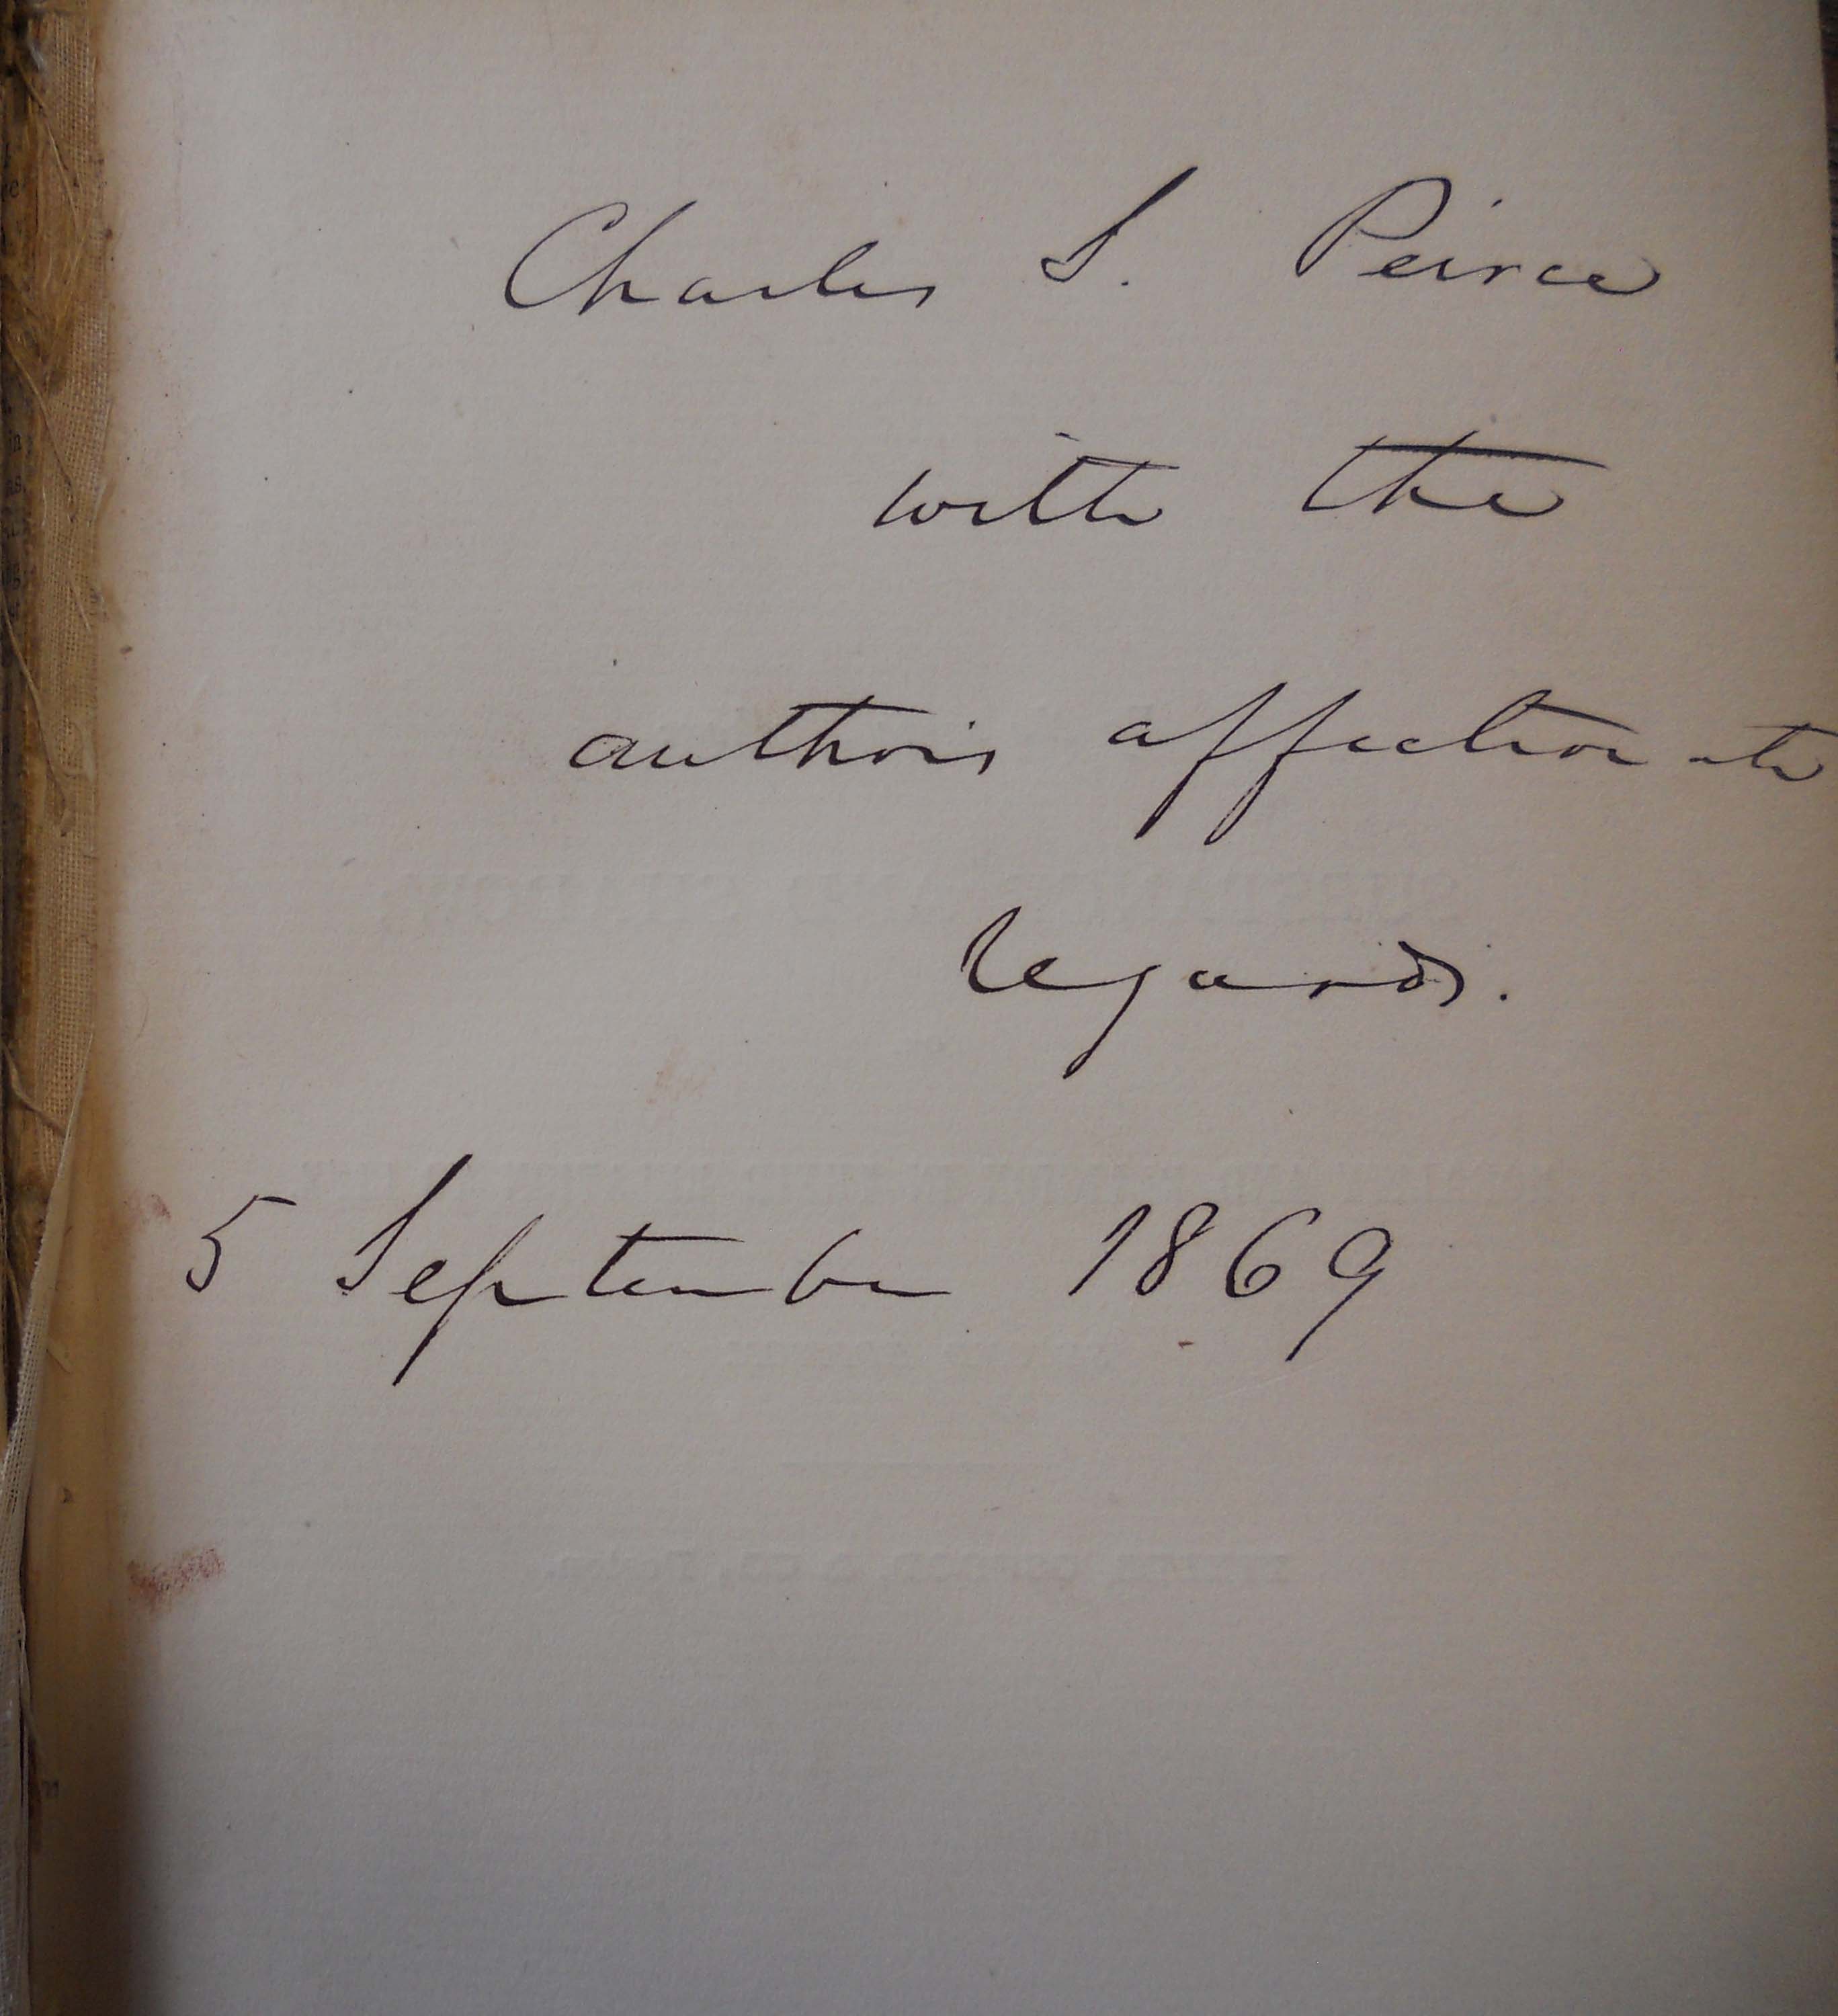 Charles S. Peirce
with the
author's affectionate
regards.
5 September 1869